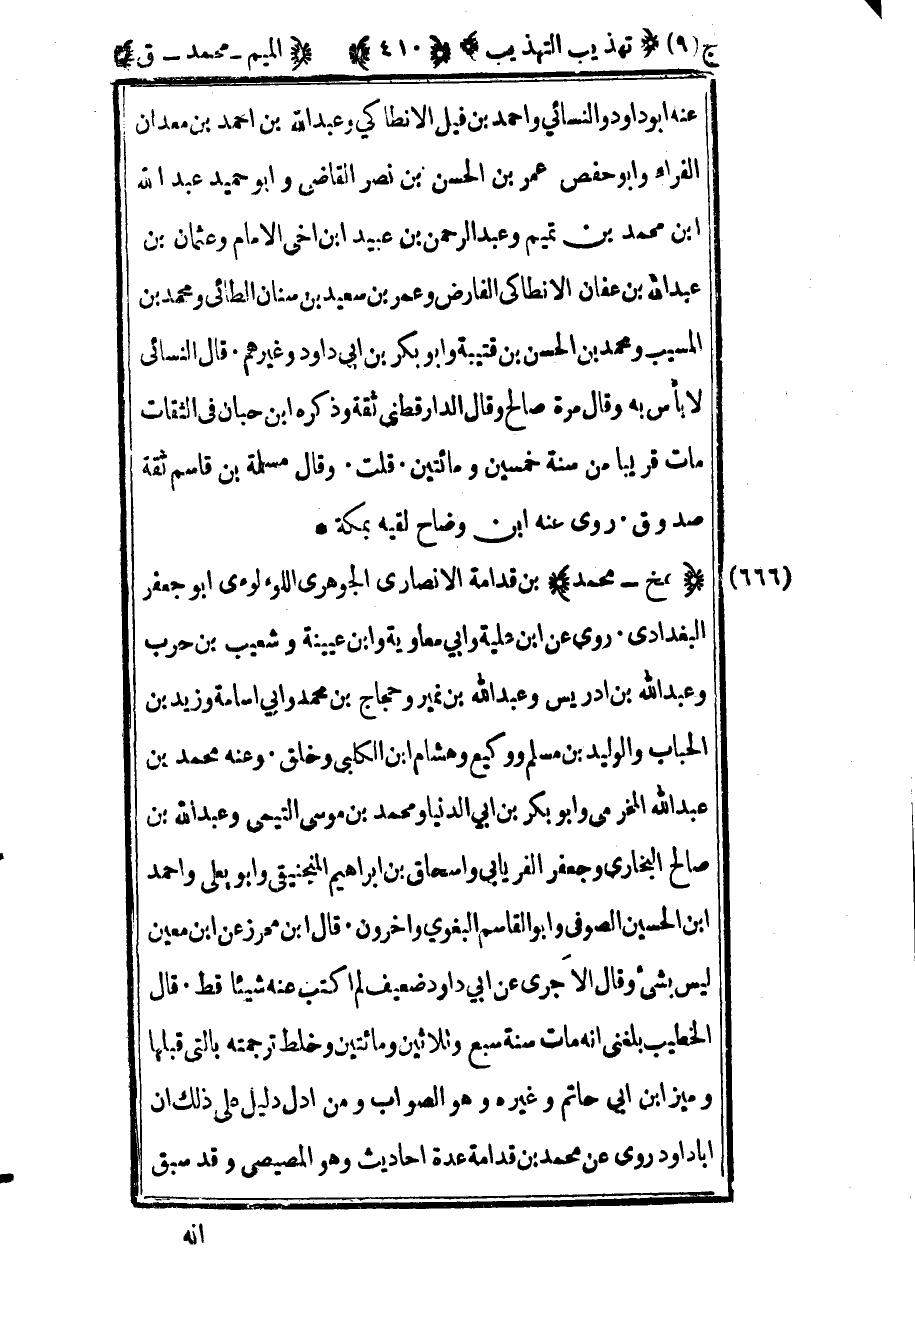 ج (٩) ﴿ تهذيب التهذيب ﴾ ﴿ ٤١٠ ﴾ ﴿ الميم ـ محمد ـ ق ﴾
عنه ابو داود والنسائي واحمد بن فيل الانطاكي وعبدالله بن احمد بن معدان
الفراء وابو حفص عمر بن الحسن بن نصر القاضى و ابو حميد عبد الله
ابن محمد بن تميم وعبدالرحمن بن عبيد ابن اخى الامام وعثمان بن
عبدالله بن عفان الانطاكى الفارض وعمر بن سعيد بن سنان الطائى ومحمد بن
المسيب ومحمد بن الحسن بن قتيبة وابو بكر بن ابي داود وغيرهم · قال النسائى
لا بأس به وقال مرة صالح وقال الدار قطنى ثقة وذكره ابن حبان فى الثقات
مات قريبا من سنة خمسين و مائتين · قلت · وقال مسلمة بن قاسم ثقة
صدوق · روى عنه ابن وضاح لقيه بمكة *
(٦٦٦) ﴿ عخ ـ محمد ﴾ بن قدامة الانصارى الجوهرى اللوءلوءى ابو جعفر
البغدادى · روى عن ابن علية وابي معاوية وابن عيينة و شعيب بن حرب
وعبدالله بن ادريس وعبدالله بن نمير وحجاج بن محمد وابي اسامة وزيد بن
الحباب والوليد بن مسلم ووكيع وهشام ابن الكلبى وخلق · وعنه محمد بن
عبدالله المخرمى وابو بكر بن ابي الدنيا ومحمد بن موسى التيمى وعبدالله بن
صالح البخاري وجعفر الفريابي واسحاق بن ابراهيم المنجنيقى وابو يعلى واحمد
ابن الحسين الصوفى وابو القاسم البغوي واخرون · قال ابن محرز عن ابن معين
ليس بشئ وقال الآجرى عن ابي داود ضعيف لم اكتب عنه شيئا قط · قال
الخطيب بلغنى انه مات سنة سبع وثلاثين ومائتين وخلط ترجمته بالتى قبلها
و ميز ابن ابي حاتم و غيره و هو الصواب و من ادل دليل على ذلك ان
ابا داود روى عن محمد بن قدامة عدة احاديث وهو المصيصى و قد سبق
انه